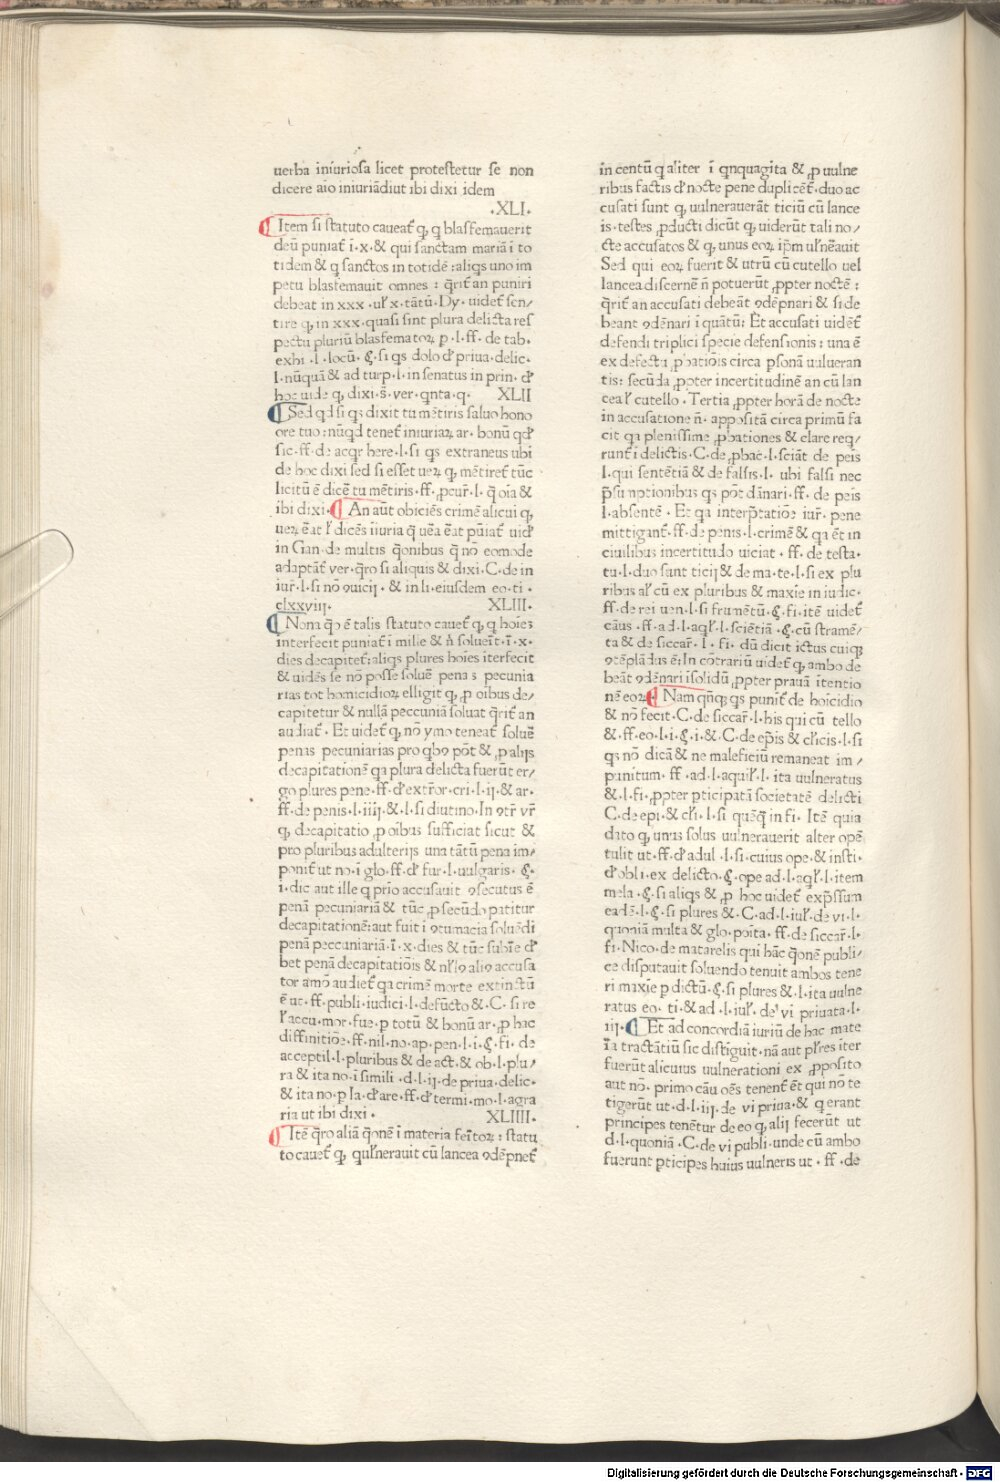 uerba iniuriosa licet protestetur se non
dicere aio iniuriādiut ibi dixi idem
·XLI·
Item si statuto caueat̄ ꝙ q blasfemauerit
deū puniat̄ ī·x·& qui sanctam mariā ī to
tidem & q sanctos in totidē : aliqs uno im
petu blastemauit omnes : q̄rit̄ an puniri
debeat in xxx·uł x·tātū·Dy·uidet̄ sen/
tire ꝙ in xxx·quasi sint plura delicta res
pectu pluriū blasfematoꝝ p·l·ff·de tab·
exhi·l·locū·§·si qs dolo ꝺ priua·delic·
l·nūquā & ad turp·l·in senatus in prin·ꝺ
hoc uide ꝙ dixi·s̄·ver·qnta·q· XLII
Sed qd si qs dixit tu mētiris saluo hono
ore tuo : nūqd tenet̄ iniuriaꝝ ar·bonū qd
sic·ff·de acqr here·l·si qs extraneus ubi
de hoc dixi sed si esset ueꝝ ꝙ mētiret̄ tūc
licitū ē dicē tu mētiris·ff·ꝓcur̄·l·q̄ oīa &
ibi dixi· An aūt obiciēs crimē alicui ꝙ
ueꝝ ēat ł dicēs īiuria q̄ uēa ēat pūiat̄ uid̄
in Gan·de multis q̄onibus q̄ nō eomode
adaptat̄ ver·q̄ro si aliquis & dixi·C·de in
iur̄·l·si nō ꝯuicij·& in li·eiusdem eo·ti·
clxxviij· XLIII·
Nona q̄o ē talis statuto cauet̄ ꝙ q hoīes
interfecit puniat̄ ī mille & n̄ soluerīt·ī·x·
dies decapitet̄ : aliqs plures hoīes īterfecit
& uidēs se nō posse soluē penas pecunia
rias tot homicidioꝝ elligit ꝙ ꝓ oībus de/
capitetur & nullā peccuniā soluat q̄rit̄ an
audiat̄·Et uidet̄ ꝙ nō ymo teneat̄ soluē
penas pecuniarias pro qbꝯ pōt & ꝓ alijs
decapitationē qa plura delicta fuerūt er/
go plures pene·ff·ꝺ extr̄or·cri·l·ij·& ar·
ff·de penis·l·iiij·& l·si diutino·In ꝯtr̄ vr̄
ꝙ decapitatio ꝓ oībus sufficiat sicut &
pro pluribus adulterijs una tātū pena im/
ponit̄ ut no·ī glo·ff·ꝺ fur·l·uulgaris·§·
i·dic aut ille q prio accusauit ꝯsecutus ē
penā pecuniariā & tūc ꝓ secūdo patitur
decapitationē : aut fuit ī ꝯtumacia soluēdi
penā peccuniariā·ī·x·dies & tūc subīe ꝺ
bet penā decapitatiōis & nłꝯ aliꝯ accusa
tor amō audiet̄ qa crimē morte extinctū
ē ut·ff·publi·iudici·l·defūcto &·C·si re
ł accu·mor·fue·p totū & bonū ar·ꝓ hac
diffinitiōe·ff·nil·no·ap·pen·l·i·§·fi·de
acceptil·l·pluribus & de act·& ob·l·plu/
ra & ita no·ī simili·d·l·ij·de priua·delic·
& ita no·p Ia·ꝺ are·ff·ꝺ termi·mo·l·agra
ria ut ibi dixi· XLIIII·
Itē q̄ro aliā q̄onē ī materia ferītoꝝ : statu
to cauet̄ ꝙ qułnerauit cū lancea ꝯdēpnet̄
in centū q aliter ī qnquagīta & ꝓ uulne
ribus factis ꝺ nocte pene duplicēt̄·duo ac
cusati sunt ꝙ uulnerauerāt ticiū cū lance
is·testes ꝓducti dicūt ꝙ uiderūt tali no/
cte accusatos & ꝙ unus eoꝝ ip̄m ułnēauit
Sed qui eoꝝ fuerit & utrū cū cutello uel
lancea discernē n̄ potuerūt ꝓpter noctē :
q̄rit̄ an accusati debeāt ꝯdēpnari & si de
beant ꝯdēnari ī quātū : Et accusati uidēt̄
defendi triplici specie defensionis : una ē
ex defectu ꝓbatiōis circa psonā uulueran
tis : secūda ꝓpter incertitudinē an cū lan
cea ł cutello·Tertia ꝓpter horā de nocte
in accusatione n̄·appositā circa primū fa
cit qa plenissime ꝓbationes & clare req/
runt̄ ī delictis·C·de ꝓbac·l·sciāt de peīs
l·qui sentētiā & de falsis·l·ubi falsi nec
p̄sūmptionibus qs pōt dānari·ff·de peīs
l·absentē·Et qa interp̄tatiōe iur̄·pene
mittigant̄·ff·de penis·l·crimē & qa ēt in
ciuilibus incertitudo uiciat·ff·de testa·
tu·l·duo sunt ticij & de ma·te·l·si ex plu
ribus ał cū ex pluribus & maxīe in iudic·
ff·de rei uen·l·si frumētū·§·fi·itē uidet̄
cāus·ff·ad·l·aqł·l·sciētiā·§·cū stramē/
ta & de siccar̄·l·fi·dū dicit ictus cuiꝗ
ꝯtēplādus ē : In cōtrariū uidet̄ ꝙ ambo de
beāt ꝯdēnari īsolidū ꝓpter prauā ītentio
nē eoꝝ· Nam qn̄ꝗ qs punit̄ de hoīcidio
& nō fecit·C·de siccar̄·l·his qui cū tello
&·ff·eo·l·i·§·i·&·C·de ep̄is & cł̄icis·l·si
qs nō dicā & ne maleficiū remaneat im/
punitum·ff·ad·l·aquił·l·ita uulneratus
&·l·fi·ꝓpter pticipatā societatē delicti
C·de epi·& cłi·l·si quēq̄ in fi·Itē quia
dato ꝙ unus solus uulnerauerit alter opē
tulit ut·ff·ꝺ adul·l·si·cuius ope·& insti·
ꝺ obli·ex delicto·§·ope ad·l·aqł·l·item
mela·§·si aliqs & ꝓ hoc uidet̄ exp̄ssum
eadē·l·§·si plures &·C·ad·l·iuł·de vi·l·
quoniā multa & glo·poīta·ff·de siccar̄·l·
fi·Nico·de matarelis qui hāc q̄onē publi/
ce disputauit soluendo tenuit ambos tene
ri maxīe p dictū·§·si plures &·l·ita uulne
ratus eo·ti·& ad·l·iuł·de vi priuata·l·
iij· Et ad concordiā iuriū de hac mate
īa tractātiū sic distiguit·nā aut płres īter
fuerūt alicuius uulnerationi ex ꝓposito
aut nō·primo cāu oēs tenent̄ ēt qui nō te
tigerūt ut·d·l·iij·de vi priua·& q erant
principes tenētur de eo ꝙ alij fecerūt ut
d·l·quoniā·C·de vi publi·unde cū ambo
fuerunt pticipes huius uulneris ut·ff·de
Digitalisierung gefördert durch die Deutsche Forschungsgemeinschaft - DFG